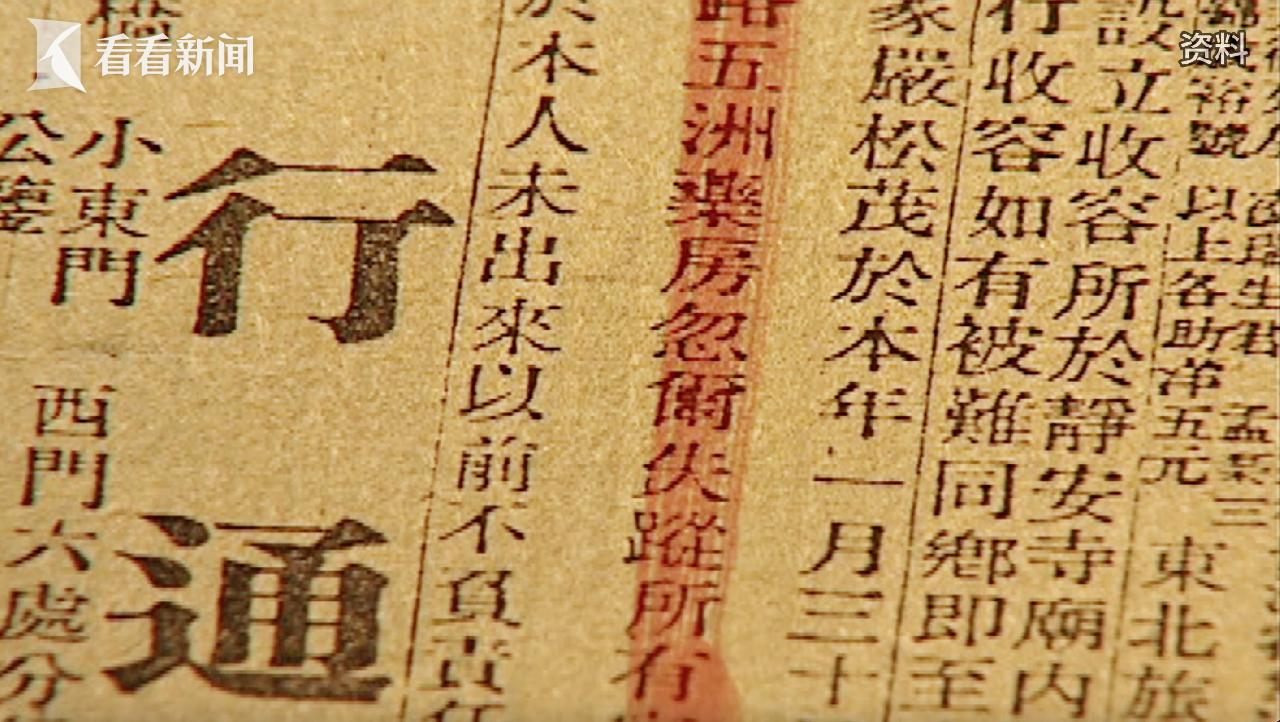 看看新闻
资料
裕號
以上各助洋五元
東北旅
設立收容所於靜安寺廟內
行收容如有被難同鄉即至
家嚴松茂於本年一月三十
路五洲藥房忽爾失蹤所有
於本人未出來以前不負責任
行通
小東門
西門六處分
公鑒